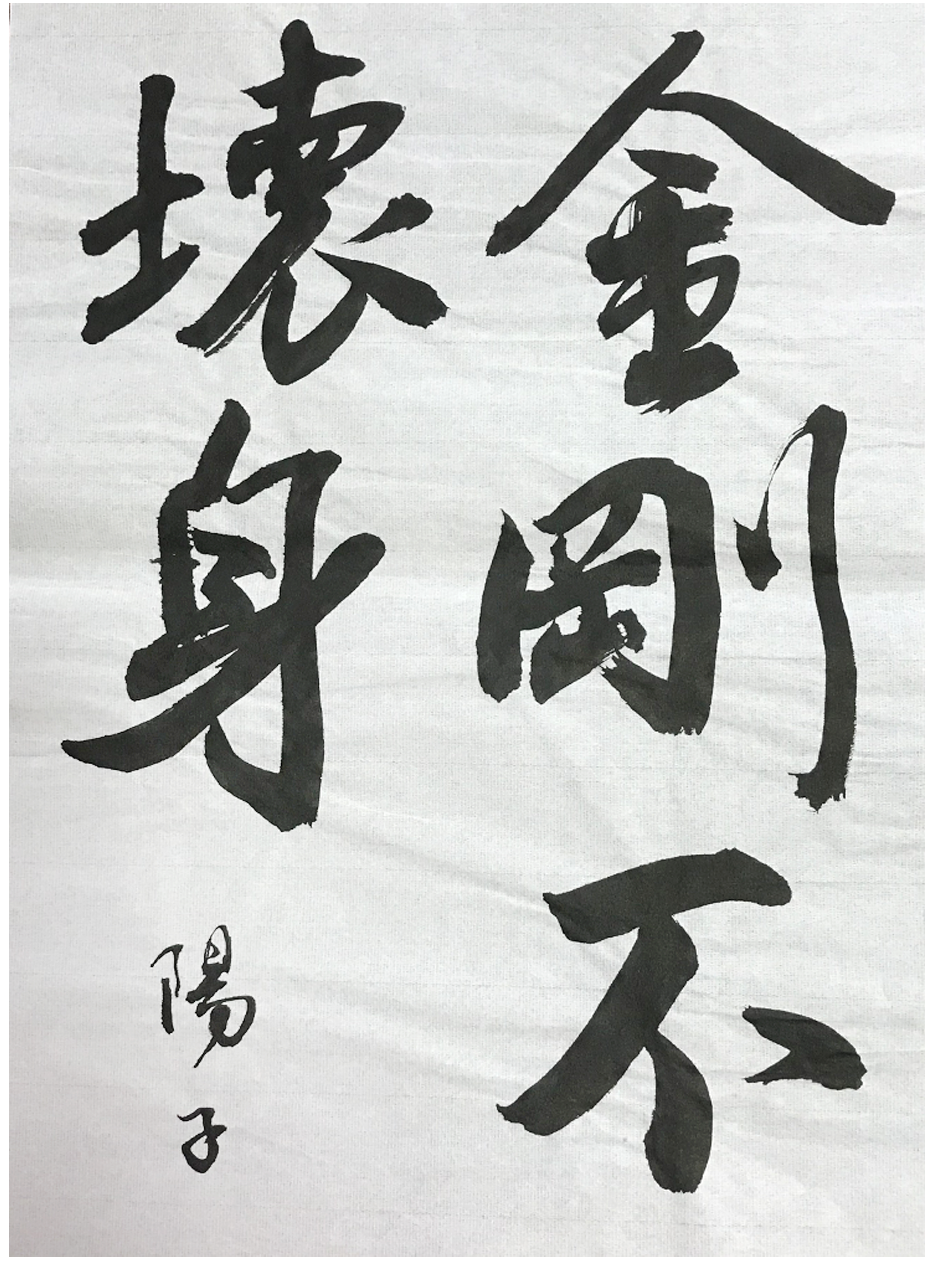 金剛不
壞身
陽子